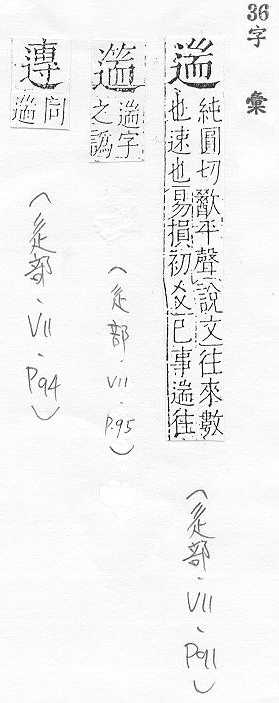 36字彙
遄
純圓切歂平聲說文往來數
也速也易損初爻已事遄往
(辵部、VII、P911)
𨖷
遄字
之譌
(辵部、VII、P.95)
𨔻
同
遄
(辵部、VII、P94)